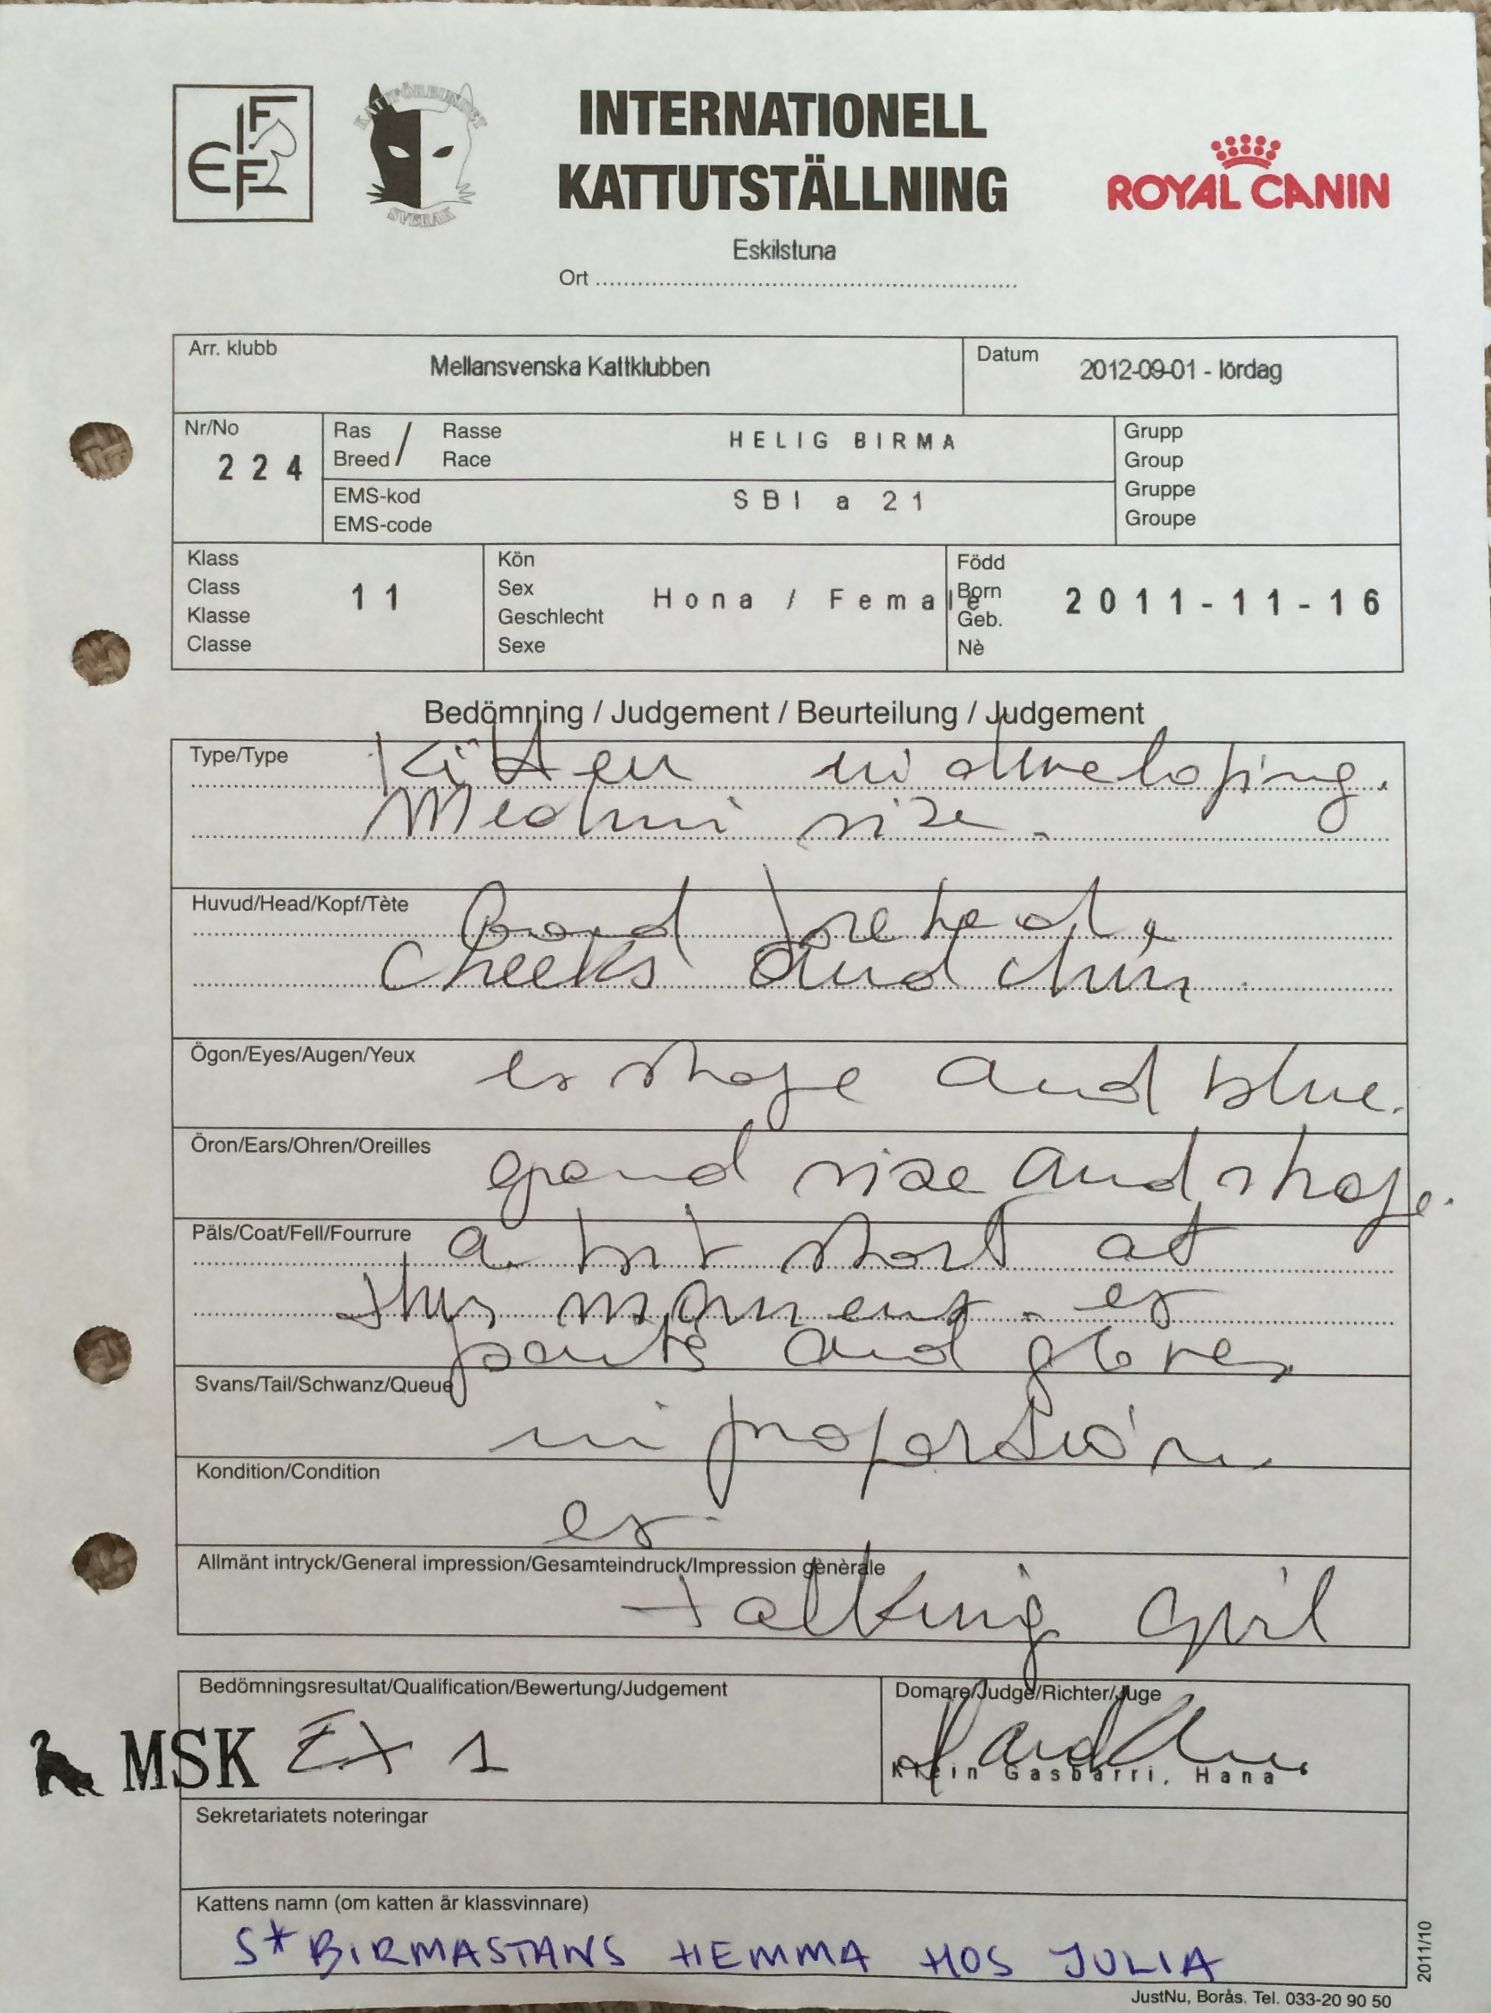 FIFE
KATTFÖRBUNDET
SVERAK
INTERNATIONELL
KATTUTSTÄLLNING
ROYAL CANIN
Eskilstuna
Ort
Arr. klubb
Mellansvenska Kattklubben
Datum
2012-09-01 - lördag
Nr/No
224
Ras / Rasse
Breed / Race
HELIG BIRMA
EMS-kod
EMS-code
SBI a 21
Grupp
Group
Gruppe
Groupe
Klass
Class
Klasse
Classe
11
Kön
Sex
Geschlecht
Sexe
Hona / Female
Född
Born
Geb.
Nè
2011-11-16
Bedömning / Judgement / Beurteilung / Judgement
Type/Type
Kitten in developing.
Medium size.
Huvud/Head/Kopf/Tète
forehead,
Cheeks and chin.
Ögon/Eyes/Augen/Yeux
ex shape and blue.
Öron/Ears/Ohren/Oreilles
size and shape.
Päls/Coat/Fell/Fourrure
a bit short at
this moment. ex
points and gloves
Svans/Tail/Schwanz/Queue
in proportion
Kondition/Condition
ex.
Allmänt intryck/General impression/Gesamteindruck/Impression gènèrale
talking girl
Bedömningsresultat/Qualification/Bewertung/Judgement
MSK EX 1
Domare/Judge/Richter/Juge
Klein Gasbarri, Hana
Sekretariatets noteringar
Kattens namn (om katten är klassvinnare)
S* BIRMASTANS HEMMA HOS JULIA
2011/10
JustNu, Borås. Tel. 033-20 90 50